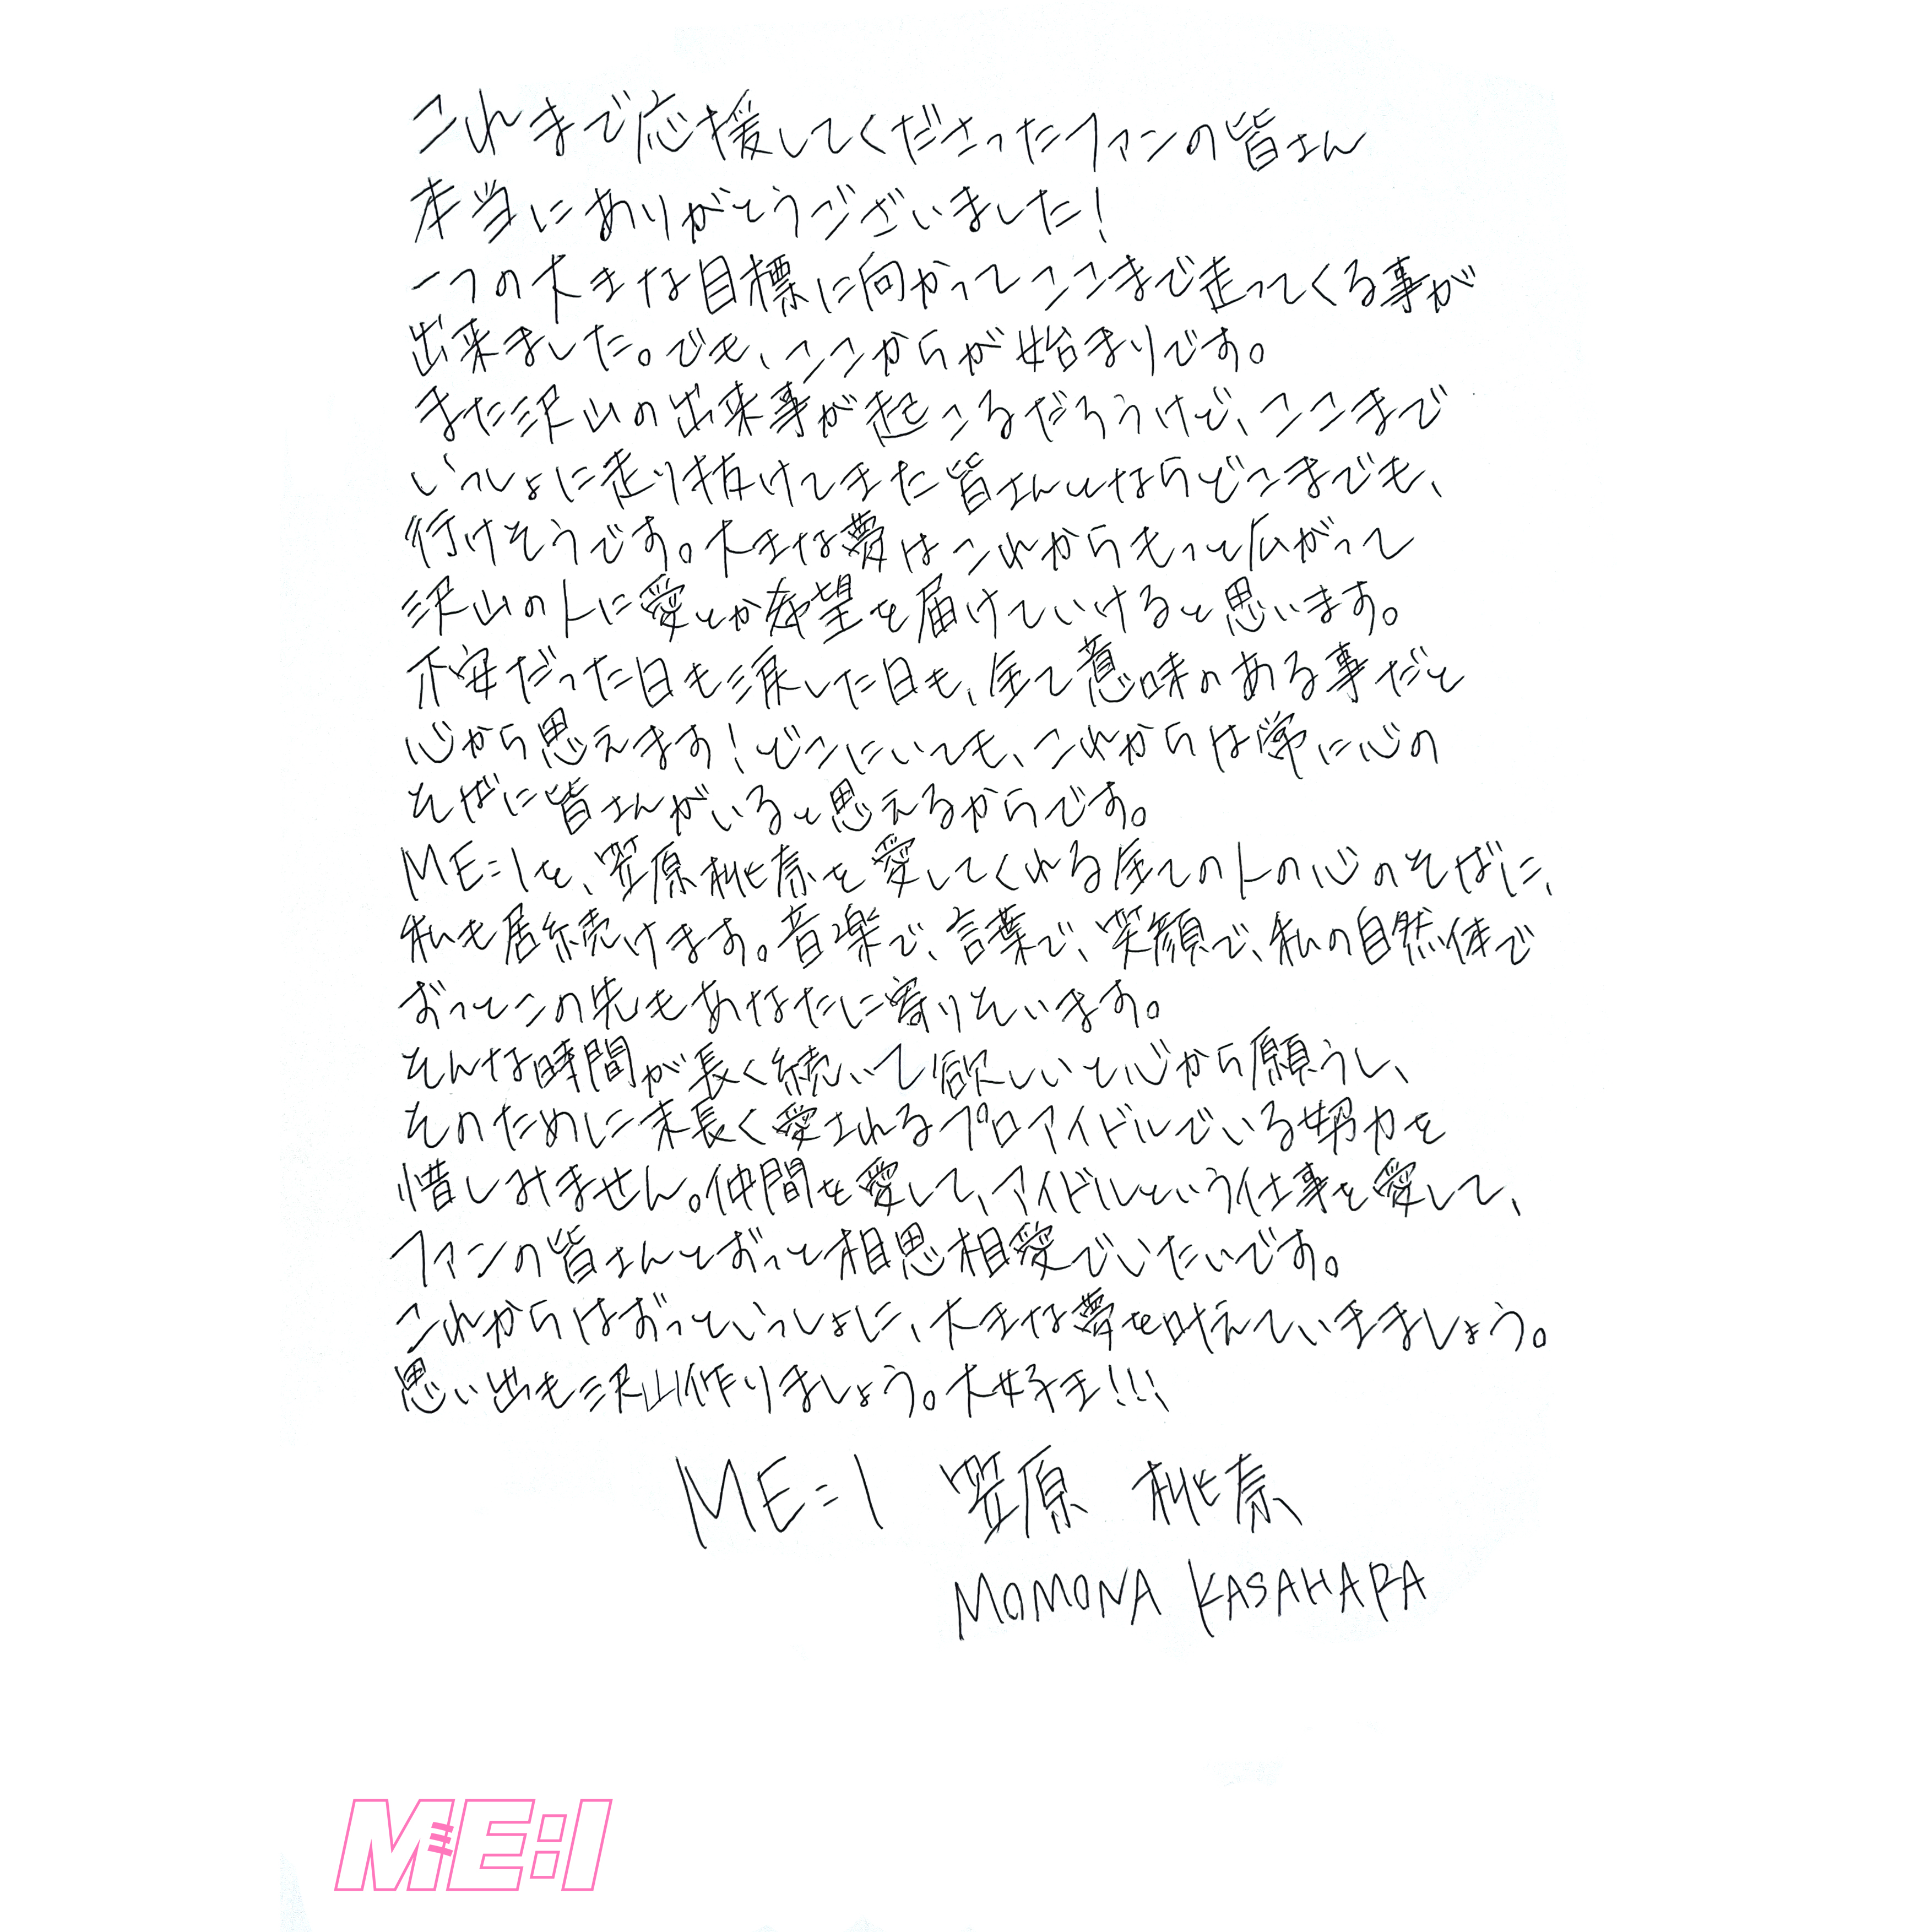 これまで応援してくださったファンの皆さん
本当にありがとうございました!
一つの大きな目標に向かってここまで走ってくる事が
出来ました。でも、ここからが始まりです。
また沢山の出来事が起こるだろうけど、ここまで
いっしょに走り抜けてきた皆さんとならどこまでも、
行けそうです。大きな夢はこれからもっと広がって
沢山の人に愛とか希望を届けていけると思います。
不安だった日も涙した日も、全て意味のある事だと
心から思えます!どこにいても、これからは常に心の
そばに皆さんがいると思えるからです。
ME:Iを、笠原桃奈を愛してくれる全ての人の心のそばに、
私も居続けます。音楽で、言葉で、笑顔で、私の自然体で
ずっとこの先もあなたに寄りそいます。
そんな時間が長く続いて欲しいと心から願うし、
そのために末長く愛されるプロアイドルでいる努力を
惜しみません。仲間を愛して、アイドルという仕事を愛して、
ファンの皆さんとずっと相思相愛でいたいです。
これからはずっといっしょに、大きな夢を叶えていきましょう。
思い出も沢山作りましょう。大好き!!!
ME:I 笠原 桃奈
MOMONA KASAHARA
ME:I